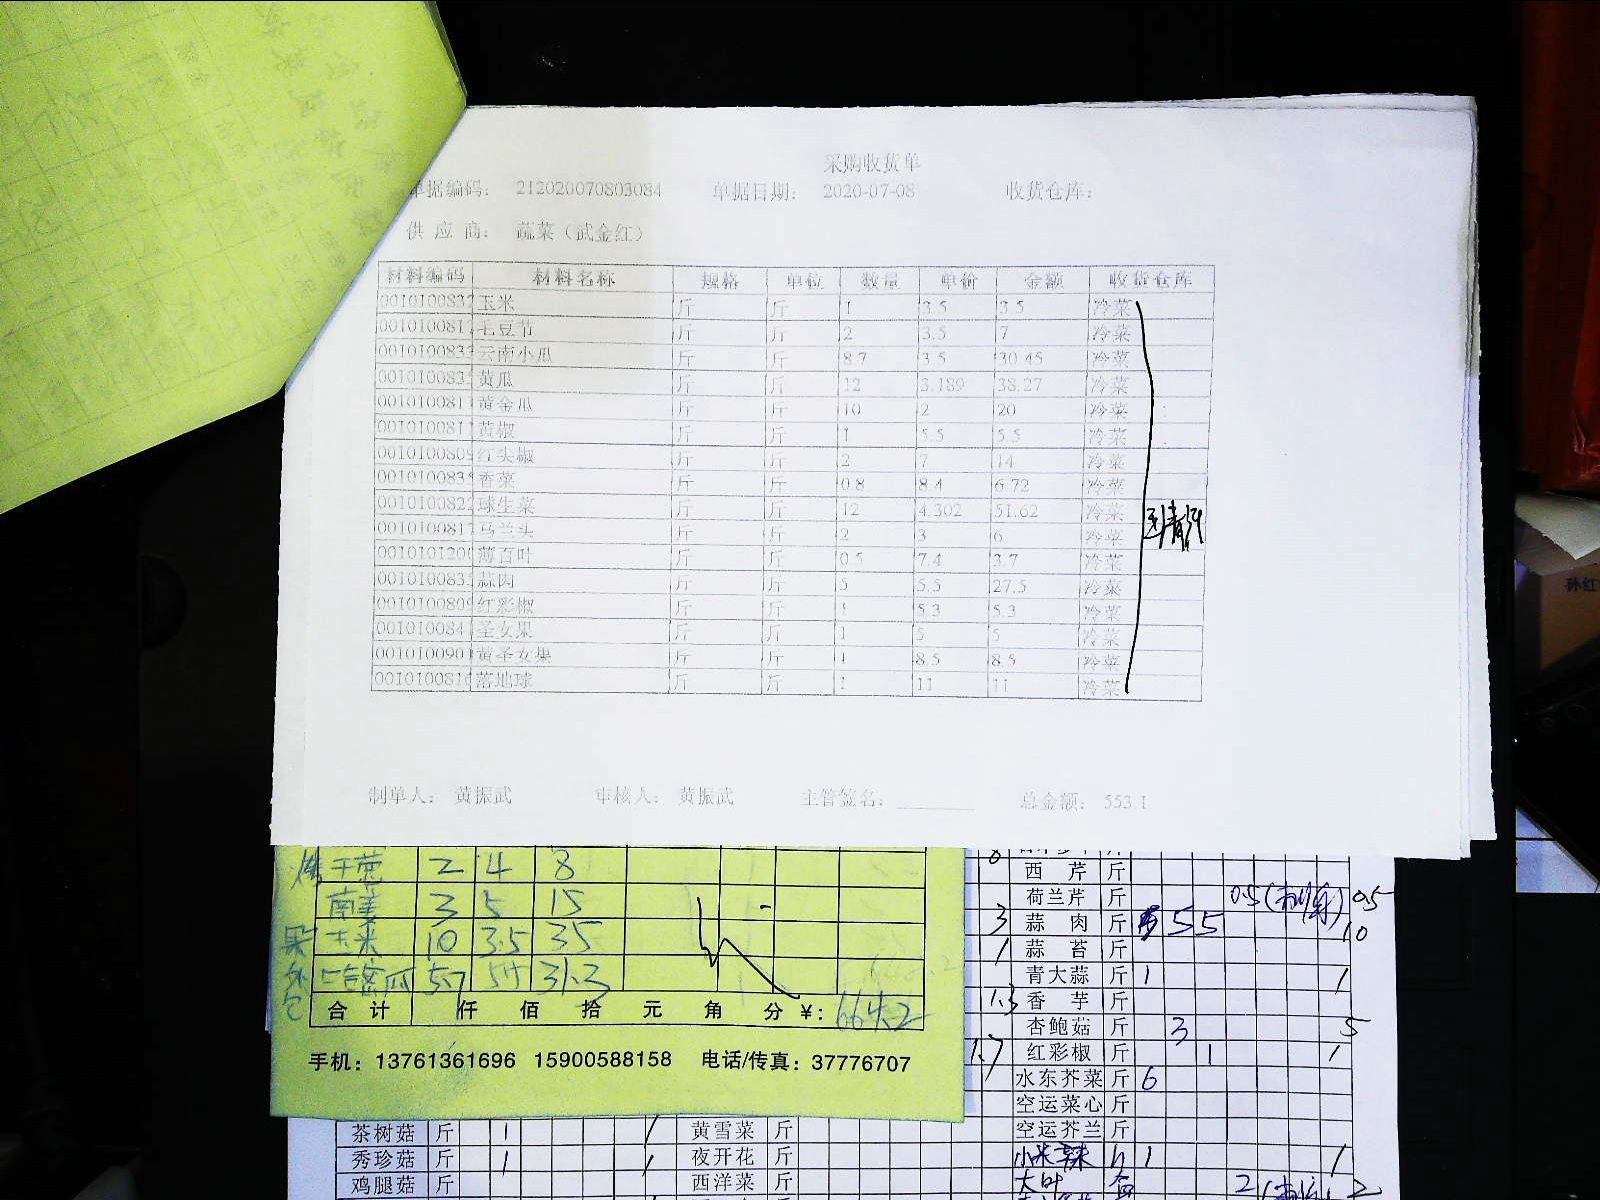 采购收货单
单据编码： 212020070803084 单据日期： 2020-07-08 收货仓库：
供应商： 蔬菜（武金红）
材料编码 材料名称 规格 单位 数量 单价 金额 收货仓库
0010100832 玉米 斤 斤 1 3.5 3.5 冷菜
001010081 毛豆节 斤 斤 2 3.5 7 冷菜
001010083 云南小瓜 斤 斤 8.7 3.5 30.45 冷菜
001010083 黄瓜 斤 斤 12 3.189 38.27 冷菜
001010081 黄金瓜 斤 斤 10 2 20 冷菜
001010081 黄椒 斤 斤 1 5.5 5.5 冷菜
001010080 红头椒 斤 斤 2 7 14 冷菜
001010083 香菜 斤 斤 0.8 8.4 6.72 冷菜
001010082 球生菜 斤 斤 12 4.302 51.62 冷菜
001010081 马兰头 斤 斤 2 3 6 冷菜
001010120 薄百叶 斤 斤 0.5 7.4 3.7 冷菜
001010083 蒜肉 斤 斤 5 5.5 27.5 冷菜
001010080 红彩椒 斤 斤 1 5.3 5.3 冷菜
001010084 圣女果 斤 斤 1 5 5 冷菜
001010090 黄圣女果 斤 斤 1 8.5 8.5 冷菜
001010081 落地球 斤 斤 1 11 11 冷菜
制单人： 黄振武 审核人： 黄振武 主管签名： 总金额： 553.1
干葱 2 4 8
南姜 3 5 15
玉米 10 3.5 35
哈密瓜 5.7 5.5 31.3
合计 仟 佰 拾 元 角 分 ¥： 664.2
手机：13761361696 15900588158 电话/传真：37776707
西芹 斤
荷兰芹 斤 0.5 0.5
3 蒜肉 斤 5 5 10
1 蒜苔 斤
青大蒜 斤 1 1
1.3 香芋 斤
杏鲍菇 斤 3 5
红彩椒 斤 1 1
1.7 水东芥菜 斤 6
空运菜心 斤
空运芥兰 斤
小米辣 1 1
大叶 2 2
茶树菇 斤 1 1 黄雪菜 斤
秀珍菇 斤 1 1 夜开花 斤
鸡腿菇 斤 西洋菜 斤
孙红